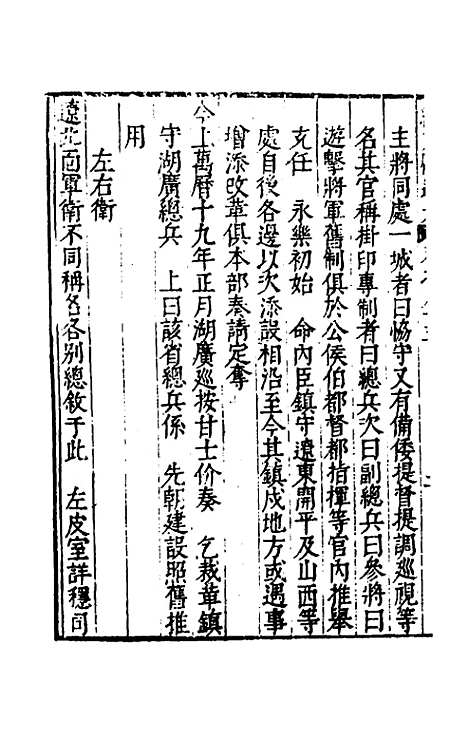 主將同處一城者曰協守又有備倭提督提調巡視等
名其官稱掛印專制者曰總兵次曰副總兵曰參將曰
遊擊將軍舊制俱於公侯伯都督都指揮等官內推舉
充任　永樂初始　命內臣鎮守遼東開平及山西等
處自後各邊以次添設相沿至今其鎮戍地方或遇事
增添改革俱本部奏請定奪
今上萬曆十九年正月湖廣巡按甘士价奏　乞裁革鎮
守湖廣總兵　上曰該省總兵係　先朝建設照舊推
用
左右衛
遼北面軍衛不同稱名各別總敘于此　左皮室詳穩司